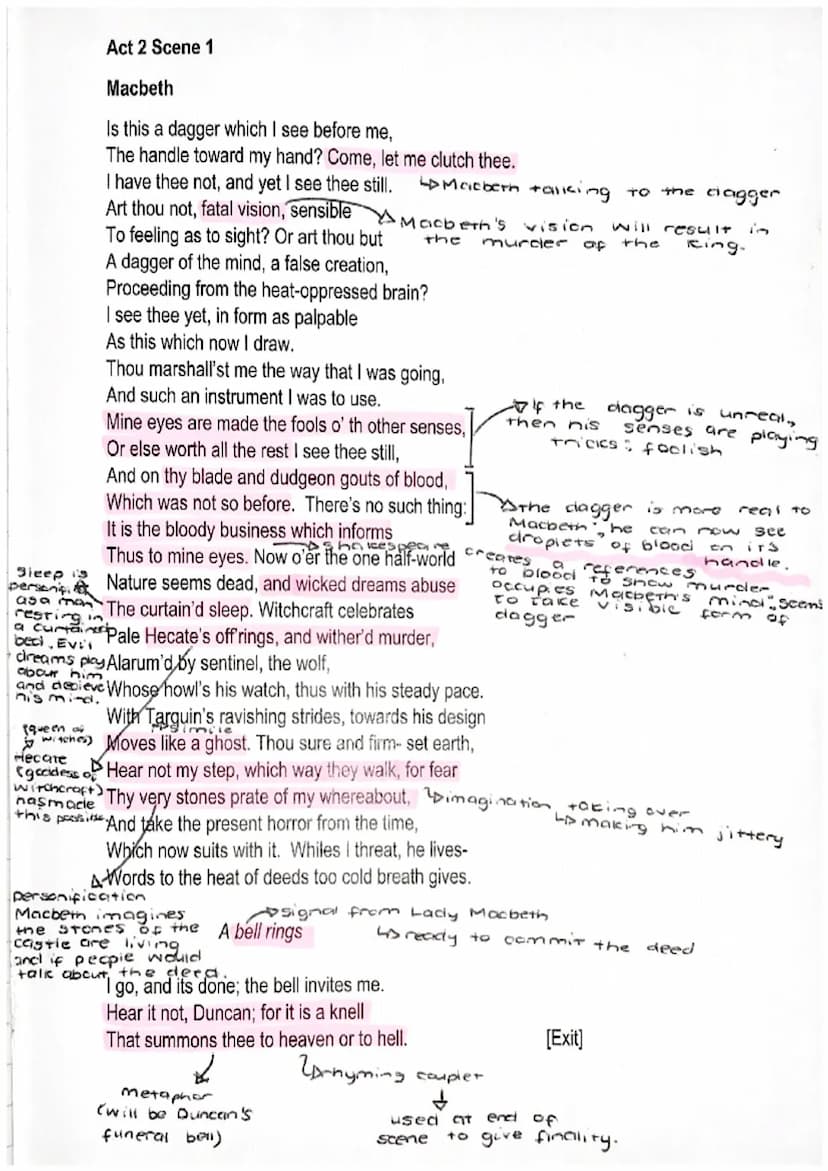 Act 2 Scene 1
Macbeth
Is this a dagger which I see before me,
The handle toward my hand? Come, let me clutch thee.
I have thee not, and yet I see thee still.
↳Macbeth talking to the dagger
Art thou not, fatal vision, sensible
Macbeth's vision will result in
the murder of the King.
To feeling as to sight? Or art thou but
A dagger of the mind, a false creation,
Proceeding from the heat-oppressed brain?
I see thee yet, in form as palpable
As this which now I draw.
Thou marshall'st me the way that I was going,
And such an instrument I was to use.
Mine eyes are made the fools o' th other senses,
Or else worth all the rest I see thee still,
If the dagger is unreal,
then his senses are playing
tricks; foolish
And on thy blade and dudgeon gouts of blood,
Which was not so before. There's no such thing:
the dagger is more real to
Macbeth; he can now see
droplets of blood on it's
handle.
It is the bloody business which informs
Thus to mine eyes. Now o'er the one half-world
Shakespeare creates a references
to blood to show murder
occupies Macbeth's mind; seems
to take visible form of
dagger
Nature seems dead, and wicked dreams abuse
The curtain'd sleep. Witchcraft celebrates
Sleep is
personif
as a man
resting in
a curtained
bed. Evil
dreams play
about him
and decieve
his mind.
Pale Hecate's off'rings, and wither'd murder,
Alarum'd by sentinel, the wolf,
Whose howl's his watch, thus with his steady pace.
With Tarquin's ravishing strides, towards his design
simile
Moves like a ghost. Thou sure and firm- set earth,
(queen of
witches)
Hecate
(goddess of
witchcraft)
has made
this possible
Hear not my step, which way they walk, for fear
Thy very stones prate of my whereabout,
↳imagination taking over
↳making him jittery
And take the present horror from the time,
Which now suits with it. Whiles I threat, he lives-
Words to the heat of deeds too cold breath gives.
personification
Macbeth imagines
the stones of the
castle are living
and if people would
talk about the deed.
A bell rings
signal from Lady Macbeth
↳ready to commit the deed
I go, and its done; the bell invites me.
Hear it not, Duncan; for it is a knell
That summons thee to heaven or to hell.
[Exit]
metaphor
(will be Duncan's
funeral bell)
rhyming couplet
used at end of
scene to give finality.